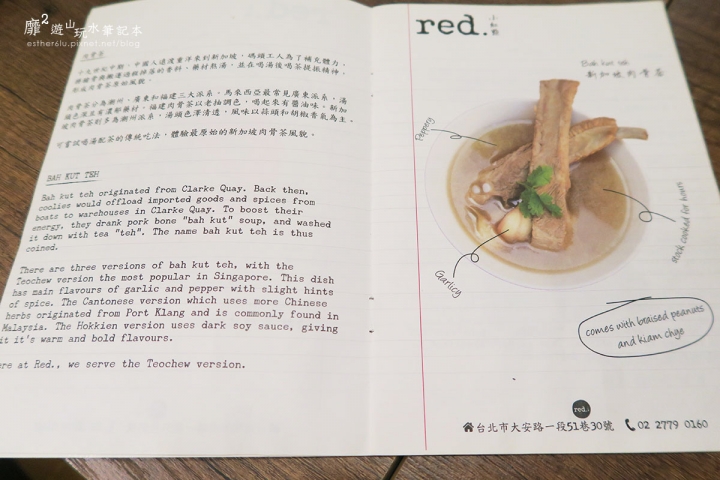 靡²遊山玩水筆記本
esther6lu.pixnet.net/blog
肉骨茶
十九世紀中期，中國人遠渡重洋來到新加坡，碼頭工人為了補充體力，
形成肉骨茶原始風貌。
肉骨茶分為潮州、廣東和福建三大派系。馬來西亞最常見廣東派系，湯
可嘗試喝湯配茶的傳統吃法，體驗最原始的新加坡肉骨茶風貌。
BAH KUT TEH
Bah kut teh originated from Clarke Quay. Back then,
coolies would offload imported goods and spices from
boats to warehouses in Clarke Quay. To boost their
energy, they drank pork bone "bah kut" soup, and washed
it down with tea "teh". The name bah kut teh is thus
coined.
There are three versions of bah kut teh, with the
Teochew version the most popular in Singapore. This dish
has main flavours of garlic and pepper with slight hints
of spice. The Cantonese version which uses more Chinese
herbs originated from Port Klang and is commonly found in
Malaysia. The Hokkien version uses dark soy sauce, giving
it it's warm and bold flavours.
ere at Red., we serve the Teochew version.
red.
小紅點
Bah kut teh
新加坡肉骨茶
Peppery
Garlicy
stock cooked for hours
comes with braised peanuts
and kiam chye
red.
台北市大安路一段51巷30號 02 2779 0160